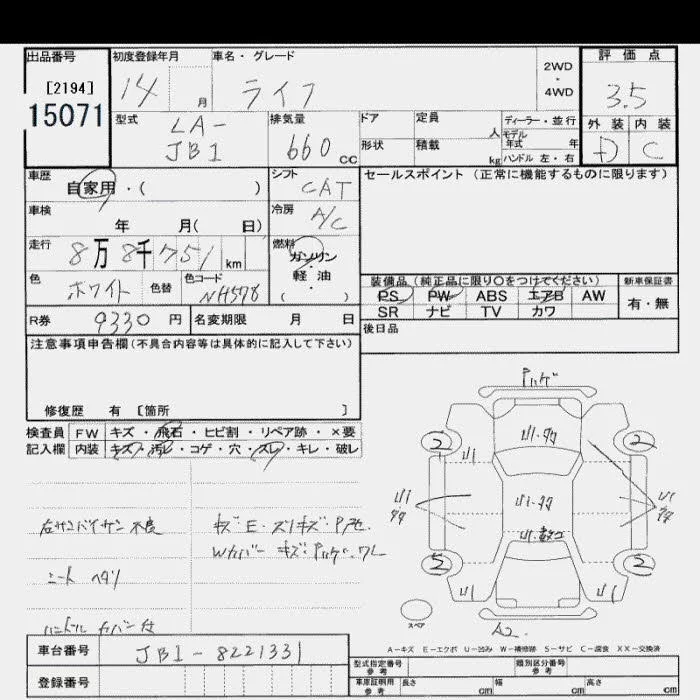 出品番号 初度登録年月 車名・グレード 2WD・4WD 評価点
[2194] 14 月 ライフ 3.5
15071 型式 LA-JB1 排気量 660cc ドア 定員 人 ディーラー・並行 外装 内装
形状 積載 kg モデル年式 年 ハンドル 左・右 D C
車歴 自家用・( ) シフト CAT セールスポイント(正常に機能するものに限ります)
車検 年 月( 日) 冷房 A/C
走行 8万8千751km 燃料 ガソリン・軽油・( )
色 ホワイト 色替 色コード NH578 装備品(純正品に限り○をつけてください) 新車保証書
PS PW ABS エアB AW 有・無
SR ナビ TV カワ
R券 9330円 名変期限 月 日 後日品
注意事項申告欄(不具合内容等は具体的に記入して下さい)
修復歴 有 [箇所 ]
検査員 FW キズ・飛石・ヒビ割・リペア跡・×要
記入欄 内装 キズ・汚レ・コゲ・穴・スレ・キレ・破レ
左サンバイザー不良
シート ヘタリ
ハンドルカバー付
キズ・E・スリキズ・
Wカバー キズ・
2 2
U1 U1
U1 U1
5 5
U1 U1
スペア
A2
A-キズ E-エクボ U-凹み W-補修跡 S-サビ C-腐食 XX-交換済
車台番号 JB1-8221331 型式指定番号 参考 類別区分番号 参考
登録番号 車庫証明用 参考 長さ cm 幅 cm 高さ cm